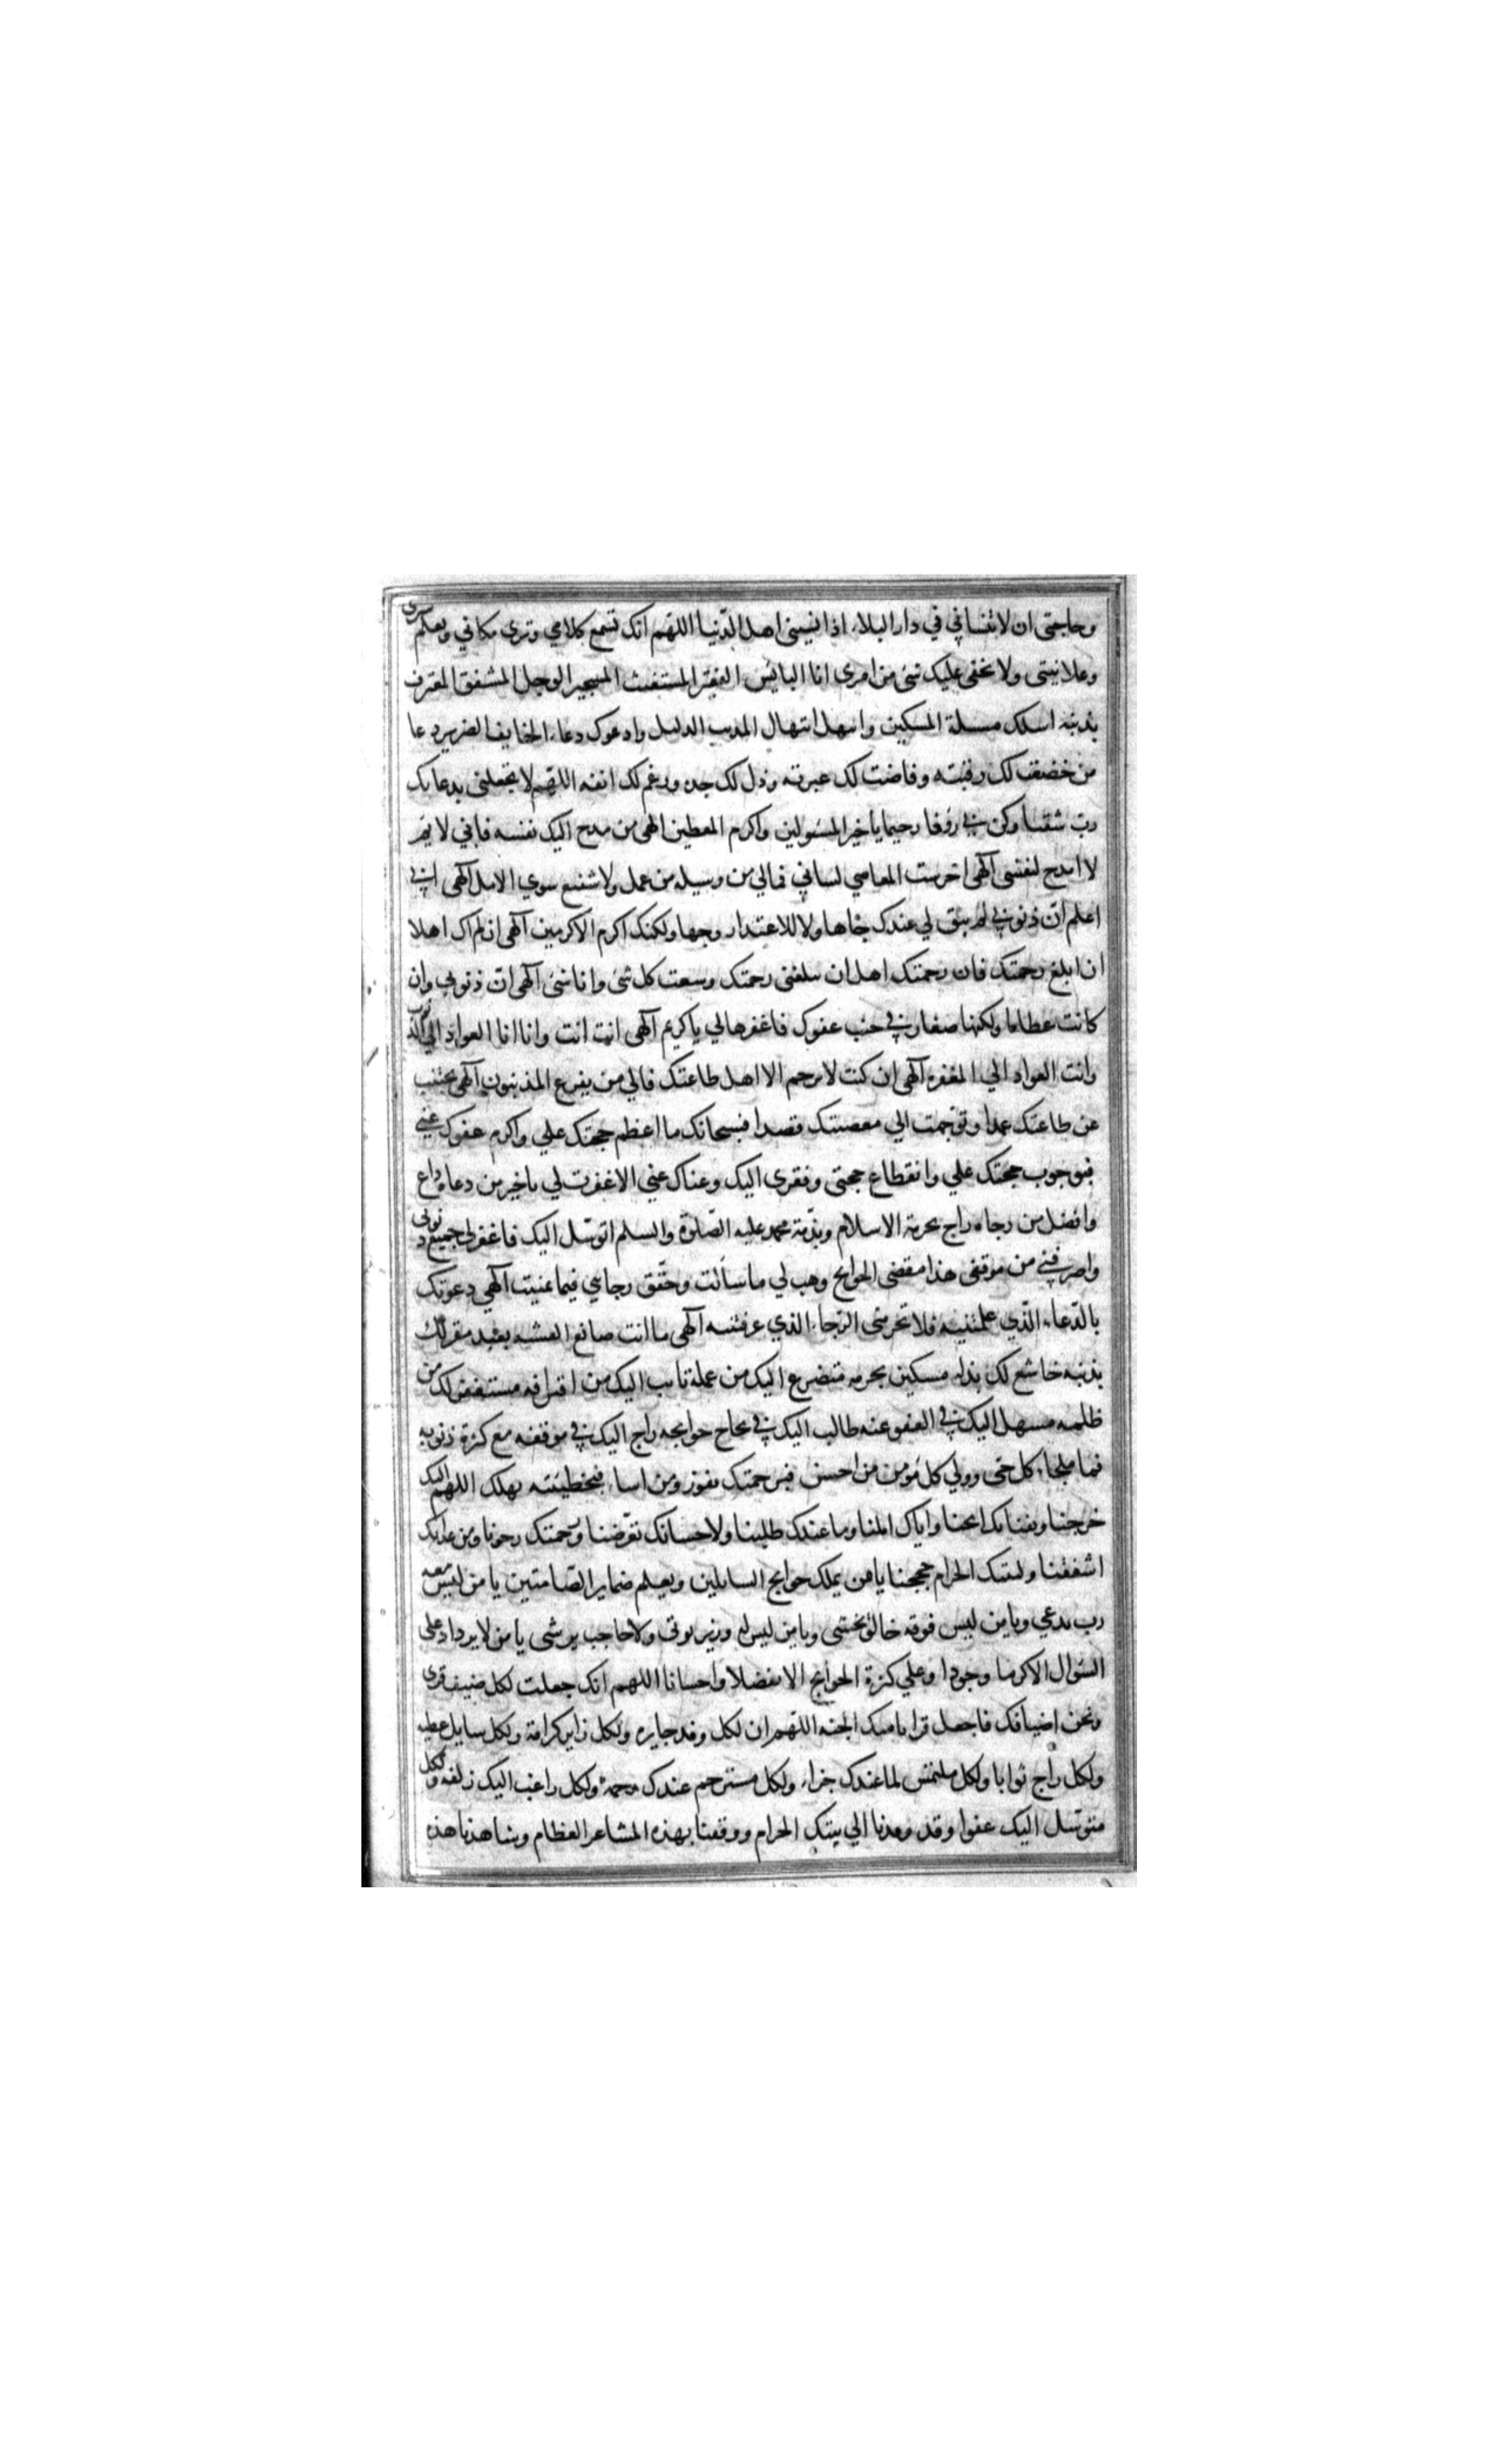 وحاجتي ان لا تنساني في دار البلاء اذا نسيني اهل الدّنيا اللهّم انك تسمع كلامي وترى مكاني وتعلم سري
وعلانيتي ولا يخفى عليك شئ من امري انا البايس الفقير المستغيث المستجير الوجل المشفق المعترف
بذنبه اسئلك مسئلة المسكين وابتهل ابتهال المذنب الذليل وادعوك دعاء الخايف الضرير دعا
من خضعت لك رقبته وفاضت لك عبرته وذل لك جسده ورغم لك انفه اللهّم لا تجعلني بدعائك
رب شقيا وكن بي رؤفا رحيما يا خير المسؤلين واكرم المعطين الهي من مدح اليك نفسه فاني لايم
لا امدح لنفسي آلهي اخرست المعاصي لساني فمالي من وسيله من عمل ولا شفيع سوي الامل آلهي اني
اعلم انّ ذنوبي لم تبق لي عندك جاها ولا للاعتذار وجها ولكنك اكرم الاكرمين آلهي ان لم اك اهلا
ان ابلغ رحمتك فان رحمتك اهل ان تبلغني رحمتك وسعت كل شئ وانا شئ آلهي انّ ذنوبي وان
كانت عظاما ولكنها صغار في جنب عفوك فاغفرها لي يا كريم آلهي انت انت وانا انا العواد الي الذنوب
وانت العواد الي المغفره آلهي ان كنت لا ترحم الا اهل طاعتك فالي من يفزع المذنبون آلهي تجنبت
عن طاعتك عمدا وتوجهت الي معصيتك قصدا فسبحانك ما اعظم حجتك علي واكرم عفوك عني
فبوجوب حجتك علي وانقطاع حجتي وفقري اليك وغناك عني الا غفرت لي يا خير من دعاه داع
وافضل من رجاه راج بحرمة الاسلام وبذّمة محمد عليه الصّلوة والسلم اتوسّل اليك فاغفر لي جميع ذنوبي
واصرفني من موقفي هذا مقضي الحوايج وهب لي ما سألت وحقّق رجايي فيما تمنيت آلهي دعوتك
بالدّعاء الّذي علمتنيه فلا تحرمني الرّجاء الذي عرفتنيه آلهي ما انت صانع العشيه بعبد مقر لك
بذنبه خاشع لك بذله مسكين بجرمه متضرع اليك من عمله تايب اليك من اقترافه مستغفر لك من
ظلمه مبتهل اليك في العفو عنه طالب اليك في نجاح حوايجه راج اليك في موقفه مع كثرة ذنوبه
فيا ملجاء كل حي وولي كل مؤمن من احسن فبرحمتك يفوز ومن اساء فبخطيئته يهلك اللهم اليك
خرجنا وبفنائك انخنا واياك املنا وما عندك طلبنا ولاحسانك تعرّضنا ورحمتك رجونا ومن عذابك
اشفقنا ولبيتك الحرام حججنا يا من يملك حوايج السايلين ويعلم ضماير الصّامتين يا من ليس معه
رب يدعي ويا من ليس فوقه خالق يخشي ويا من ليس له وزير يوتي ولا حاجب يرشي يا من لا يزداد على
السّوال الا كرما وجودا وعلي كثرة الحوايج الا تفضلا واحسانا اللهم انك جعلت لكل ضيف قرى
ونحن اضيافك فاجعل قرانا منك الجنه اللهّم ان لكل وفد جايزه ولكل زاير كرامة ولكل سايل عطيه
ولكل راج ثوابا ولكل ملتمس لما عندك جزاء ولكل مسترحم عندك رحمة ولكل راغب اليك زلفه ولكل
متوسل اليك عفوا وقد وفدنا الي بيتك الحرام ووقفنا بهذه المشاعر العظام وشاهدنا هذه